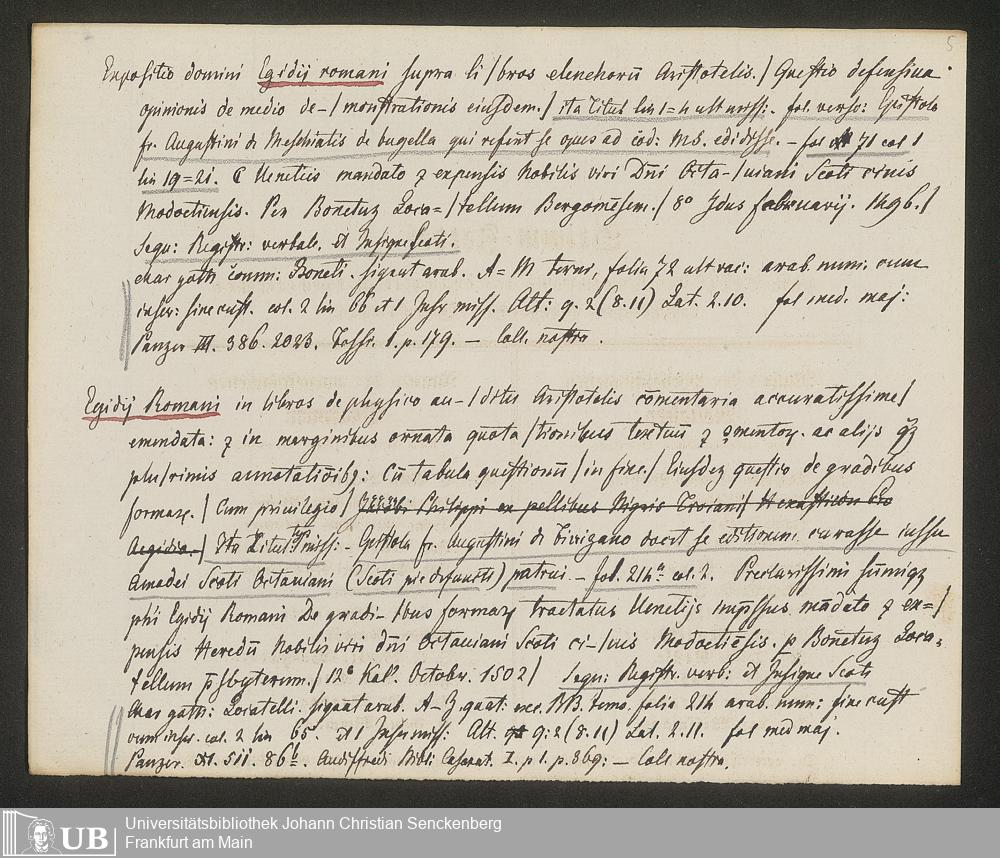 5
Expositio domini Egidij romani supra li/bros elenchorū Aristotelis./ Questio defensiua
opinionis de medio de-/monstrationis eiusdem./ ita titul lin 1=4 ult miss:. fol. verso: Epistola
fr. Augustini de Meschiatis de bugella qui refert se opus ad cod: MS. edidisse. – fol 71 col 1
lin 19=21. Venetiis mandato ꝛ expensis Nobilis viri Dñi Octa-/uiani Scoti ciuis
Modoetiensis. Per Bonetuz Loca=/tellum Bergomēsem./ 8º Idus februarij. 1496./
Sequ: Registr: verbale. et Insigne Scoti.
char goth comm: Boneti. signat arab. A=M terni, folia 72 ult vac: arab. num: cum
inscr: sine cust. col. 2 lin 66 et 1 Inscr miss. Alt: 9.2 (8.11) Lat. 2.10. fol med. maj:
Panzer III. 386. 2023. Fossi. 1. p. 179. – Coll. nostra.
Egidij Romani in libros de physico au-/ditu Aristotelis cōmentaria accuratissime/
emendata: ꝛ in marginibus ornata quota/tionibus textuū ꝛ ɔmentoꝝ. ac alijs ꝙꝫ
plu/rimis annotatiōibꝫ: Cū tabula questionū/in fine./ Eiusdez questio de gradibus
formaꝝ./ Cum priuilegio/ Philippi ex pellibus Nigris Troiani/ Hexastichon Pro
Aegidio./ Ita Titul miss: – Epistola fr. Augustini de Bivigano docet se editionem curasse iussu
Amadei Scoti Octauiani (Scoti pie defuncti) patrui – fol. 214ª col. 2. Preclarissimi sūmiqꝫ
phi Egidij Romani De gradi-/bus formaꝝ tractatus Venetijs impssus mādato ꝛ ex=/
pensis Heredū Nobilis viri dñi Octauiani Scoti ci-/uis Modoetiēsis. p Bonetuz Loca=
tellum p̄sbyterum./ 12º Kal. Octobr. 1502/ Sequ: Registr. verb: et Insigne Scoti
char goth: Locatelli. signat arab. A–Z quat: BB. folia 214 arab. num: sine cust
cum inscr. col. 2 lin 65. et 1 Inscr miss: Alt. 9:2 (8.11) Lat. 2.11. fol med maj.
Panzer. XI. 511. 86b. Audiffredi Bibl: Casanat. I. p 1. p. 869: – Coll nostra.
UB
Universitätsbibliothek Johann Christian Senckenberg
Frankfurt am Main